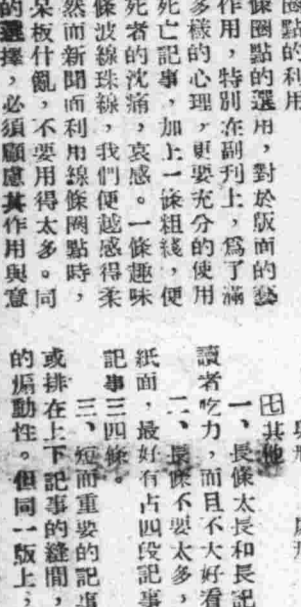 圈點的利用
條圈點的選用，對於版面的藝
作用，特別在副刊上，爲了滿
多樣的心理，更要充分的使用
死亡記事，加上一條粗綫，便
死者的沈痛，哀感。一條趣味
條波線珠線，我們便越感得柔
然而新聞而利用線條圈點時，
呆板什亂，不要用得太多。同
的選擇，必須顧慮其作用與意
七其他
一、長條太長和長記
讀者吃力，而且不大好看
二、長條不要太多，
紙面，最好有占四段記事
記事三四條。
三、短而重要的記事
或排在上下記事的縫間，
的煽動性。但同一版上，